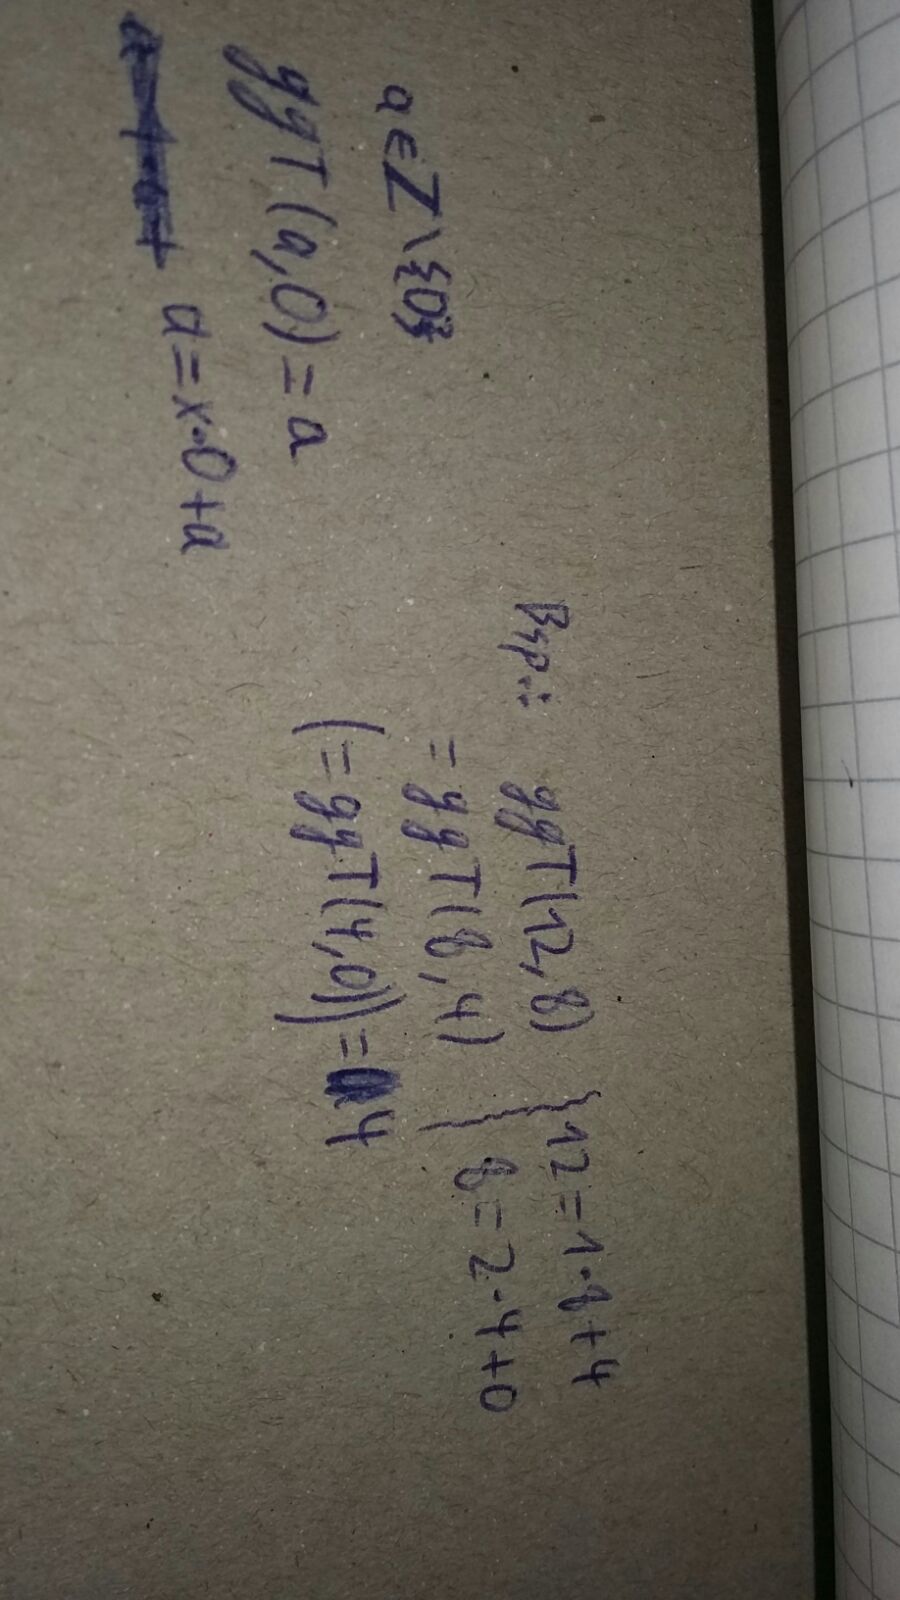 a ∈ Z \ {0}
ggT(a,0) = a
a = x·0+a
Bsp.:
ggT(12,8) } 12 = 1·8+4
= ggT(8,4) } 8 = 2·4+0
(= ggT(4,0)) = 4